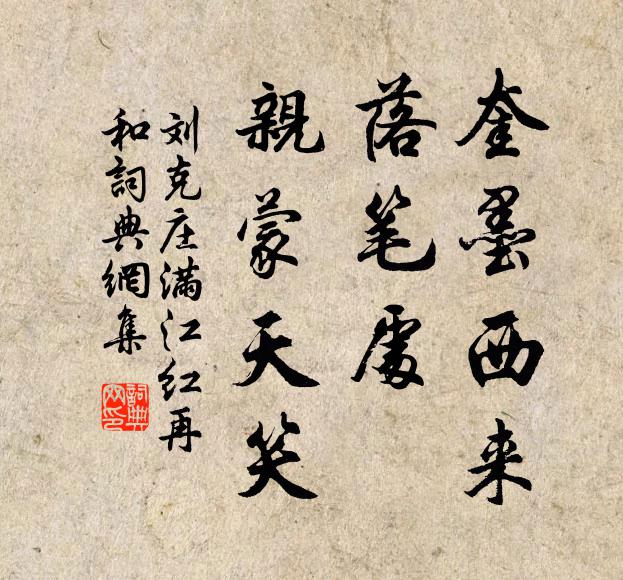 奎墨西来
落笔處
親蒙天笑
刘克庄满江红再
和詞典網集
詞典
网印